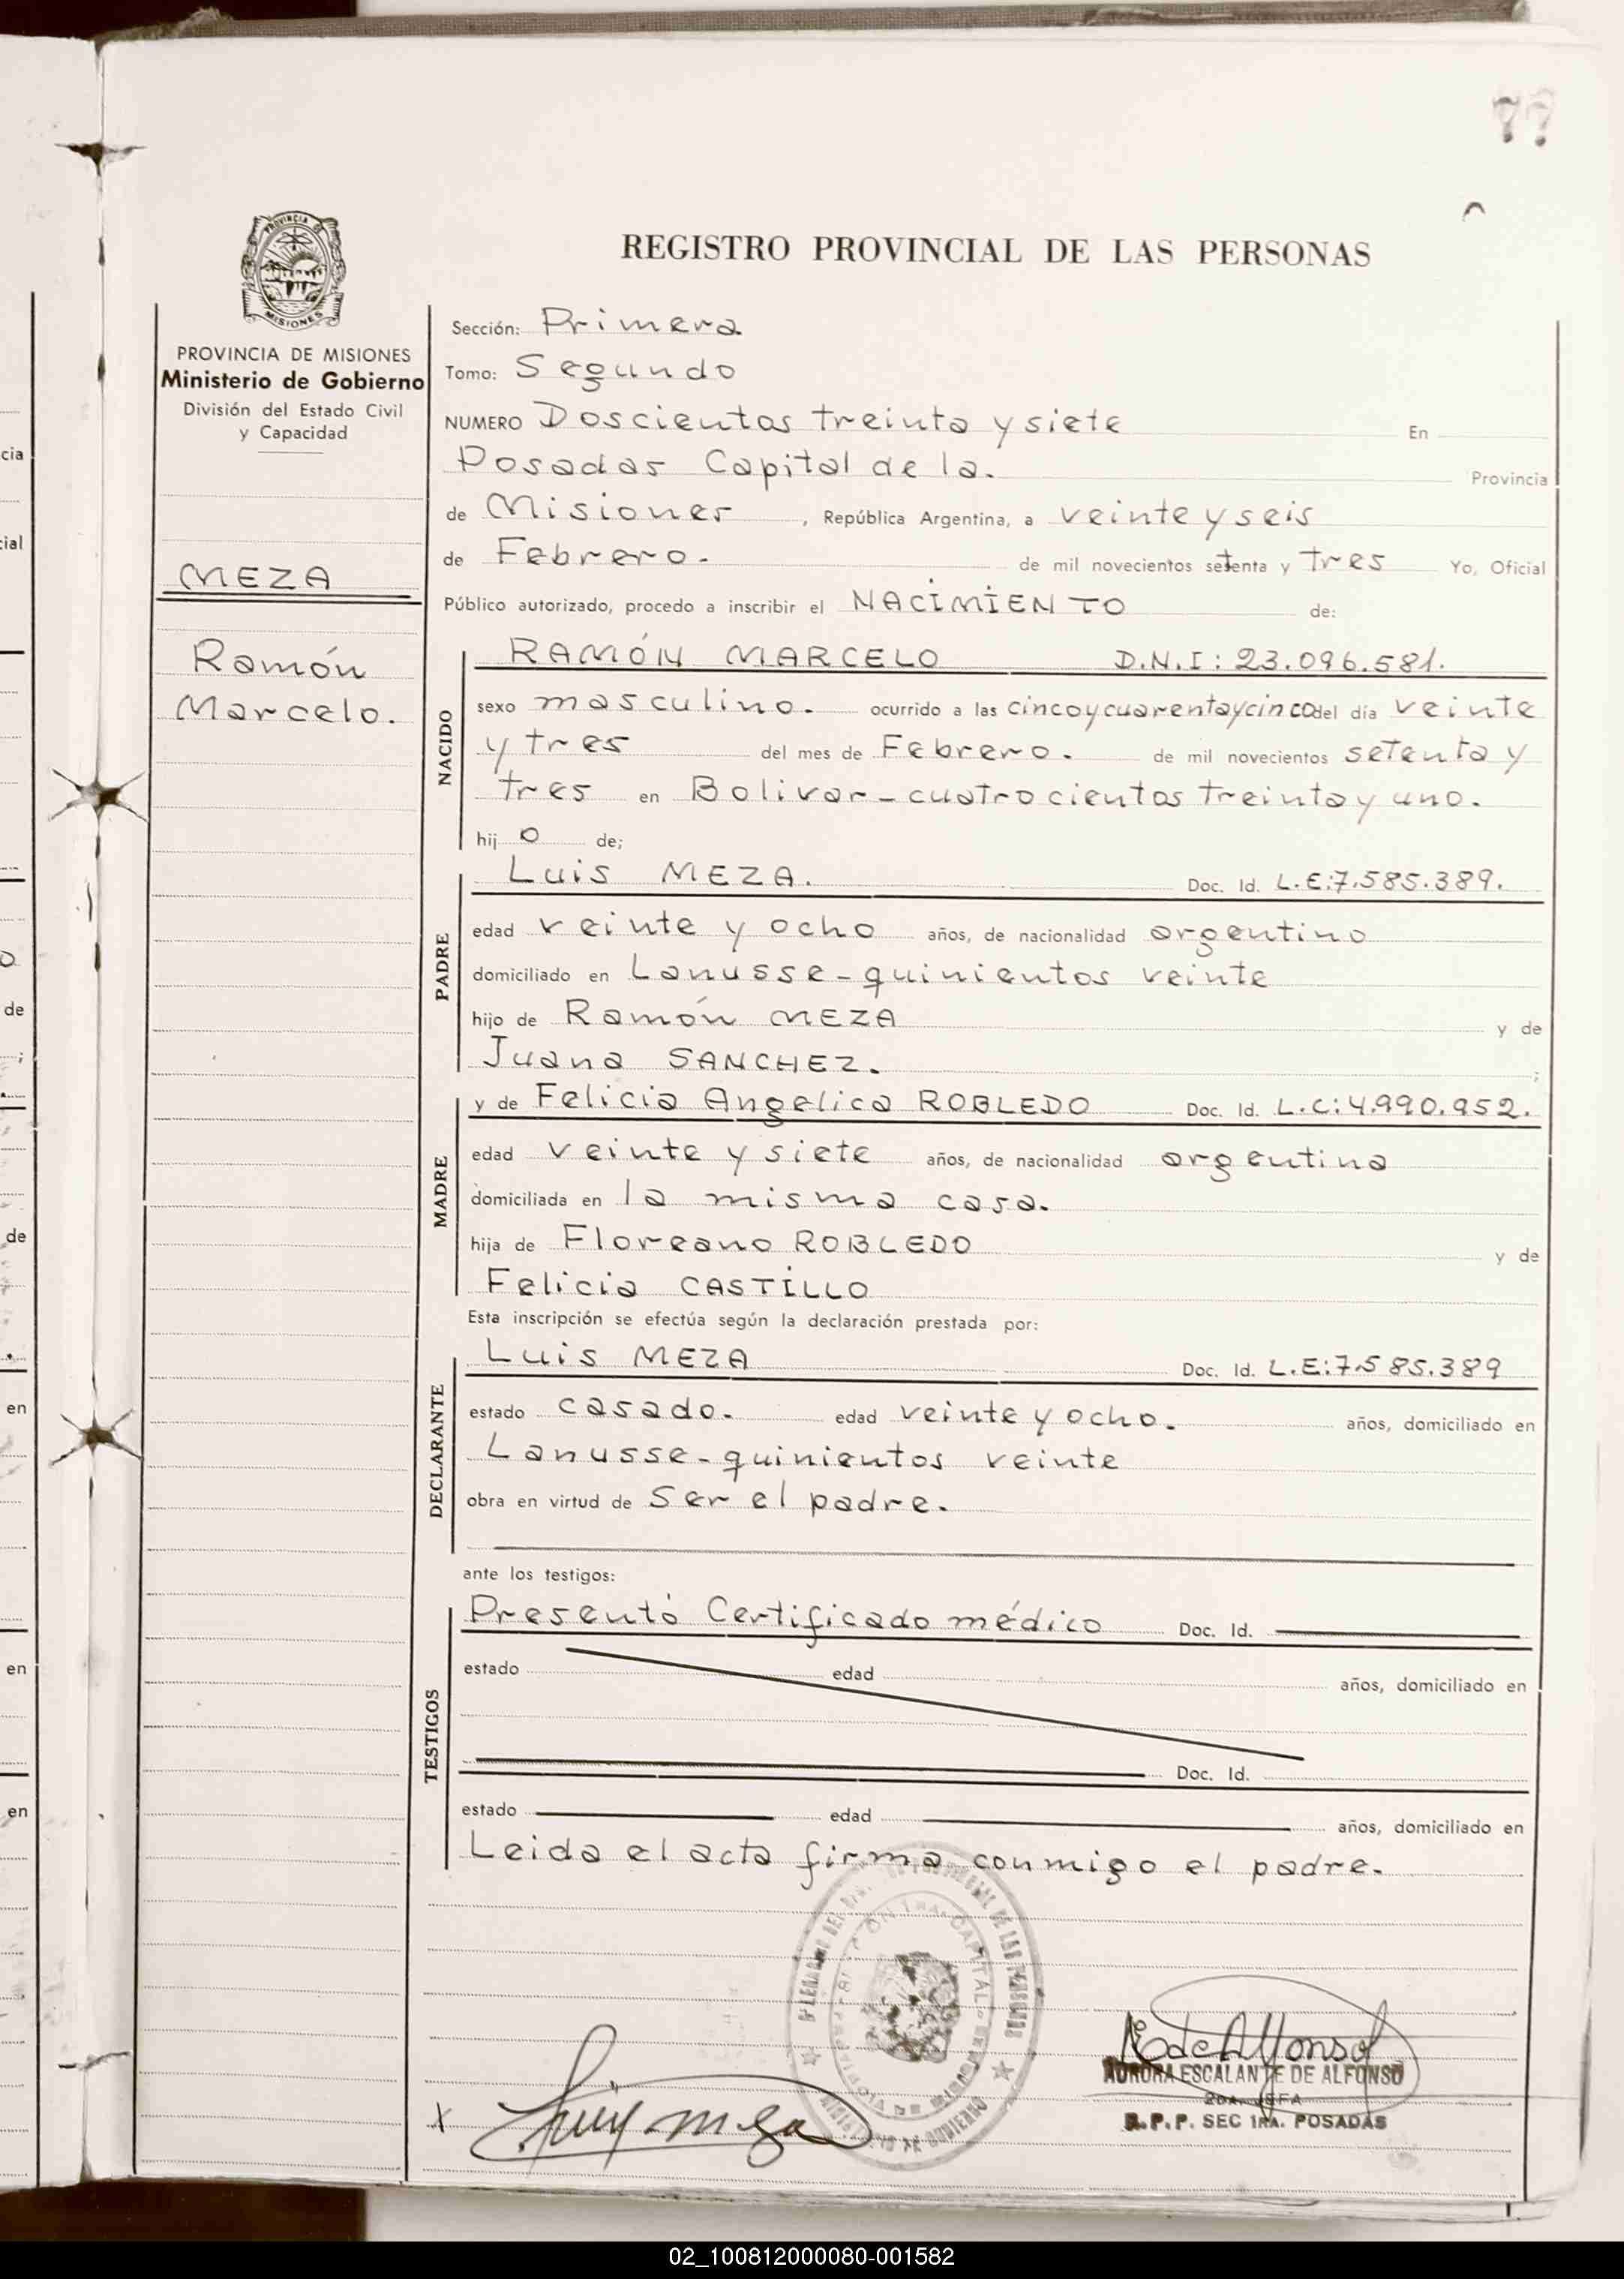 77
REGISTRO PROVINCIAL DE LAS PERSONAS
PROVINCIA DE
MISIONES
PROVINCIA DE MISIONES
Ministerio de Gobierno
División del Estado Civil
y Capacidad
MEZA
Ramón
Marcelo.
Sección: Primera
Tomo: Segundo
NUMERO Doscientos treinta y siete En
Posadas Capital de la. Provincia
de Misiones, República Argentina, a veinte y seis
de Febrero. de mil novecientos setenta y tres Yo, Oficial
Público autorizado, procedo a inscribir el NACIMIENTO de:
NACIDO
RAMÓN MARCELO D.N.I: 23.096.581.
sexo masculino. ocurrido a las cinco y cuarenta y cinco del día veinte
y tres del mes de Febrero. de mil novecientos setenta y
tres en Bolivar-cuatrocientos treinta y uno.
hij o de;
PADRE
Luis MEZA. Doc. Id. L.E:7.585.389.
edad veinte y ocho años, de nacionalidad argentino
domiciliado en Lanusse-quinientos veinte
hijo de Ramón MEZA y de
Juana SANCHEZ. ;
MADRE
y de Felicia Angelica ROBLEDO Doc. Id. L.C:4.990.952.
edad veinte y siete años, de nacionalidad argentina
domiciliada en la misma casa.
hija de Floreano ROBLEDO y de
Felicia CASTILLO
Esta inscripción se efectúa según la declaración prestada por:
DECLARANTE
Luis MEZA Doc. Id. L.E:7.585.389
estado casado. edad veinte y ocho. años, domiciliado en
Lanusse-quinientos veinte
obra en virtud de Ser el padre.
ante los testigos:
TESTIGOS
Presentó Certificado médico Doc. Id.
estado edad años, domiciliado en
Doc. Id.
estado edad años, domiciliado en
Leida el acta firma conmigo el padre.
x Luis Meza
AEdeAlfonso
AURORA ESCALANTE DE ALFONSO
2DA. JEFA
R.P.P. SEC 1RA. POSADAS
cia
cial
de
de
en
en
en
02_100812000080-001582